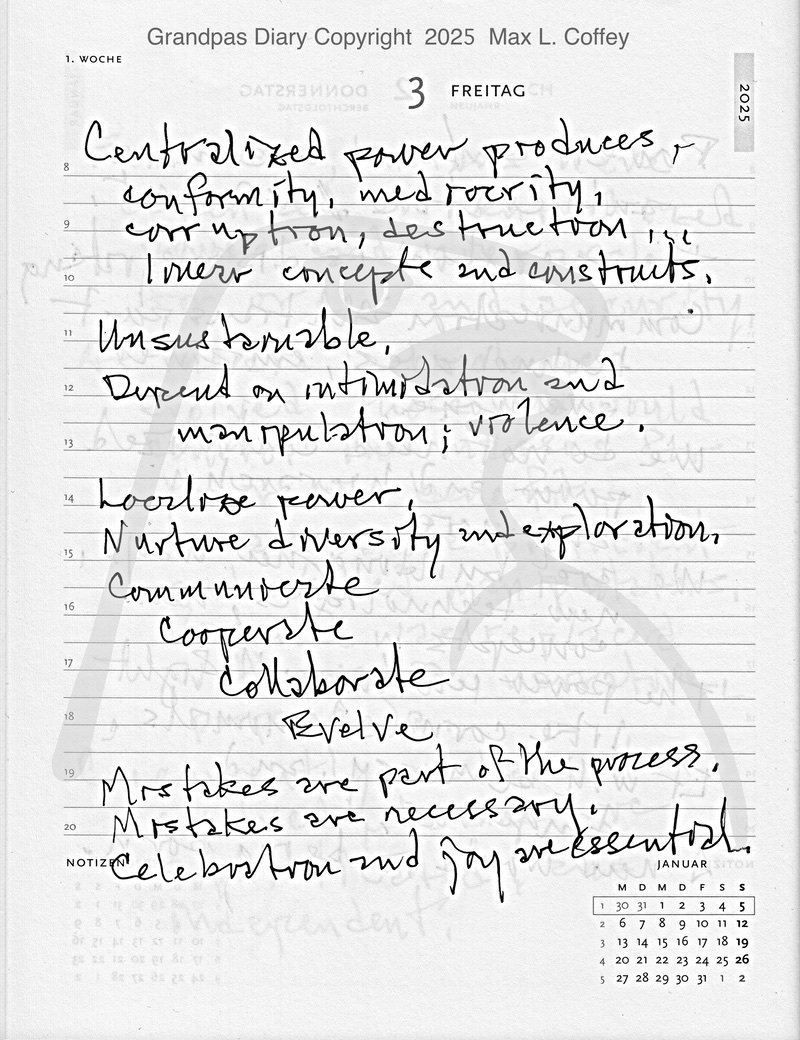 Grandpas Diary Copyright 2025 Max L. Coffey
1. WOCHE
3 FREITAG
2025
Centralized power produces,
8
conformity, mediocrity,
9
corruption, destruction ...
10
linear concepts and constructs.
11
Unsustainable,
12
Depend on intimidation and
13
manipulation; violence.
14
Localize power,
Nurture diversity and exploration.
15
Communicate
16
Cooperate
17
Collaborate
18
Evolve
19
Mistakes are part of the process.
Mistakes are necessary.
20
Celebration and joy are essential.
NOTIZEN
JANUAR
M D M D F S S
1 30 31 1 2 3 4 5
2 6 7 8 9 10 11 12
3 13 14 15 16 17 18 19
4 20 21 22 23 24 25 26
5 27 28 29 30 31 1 2